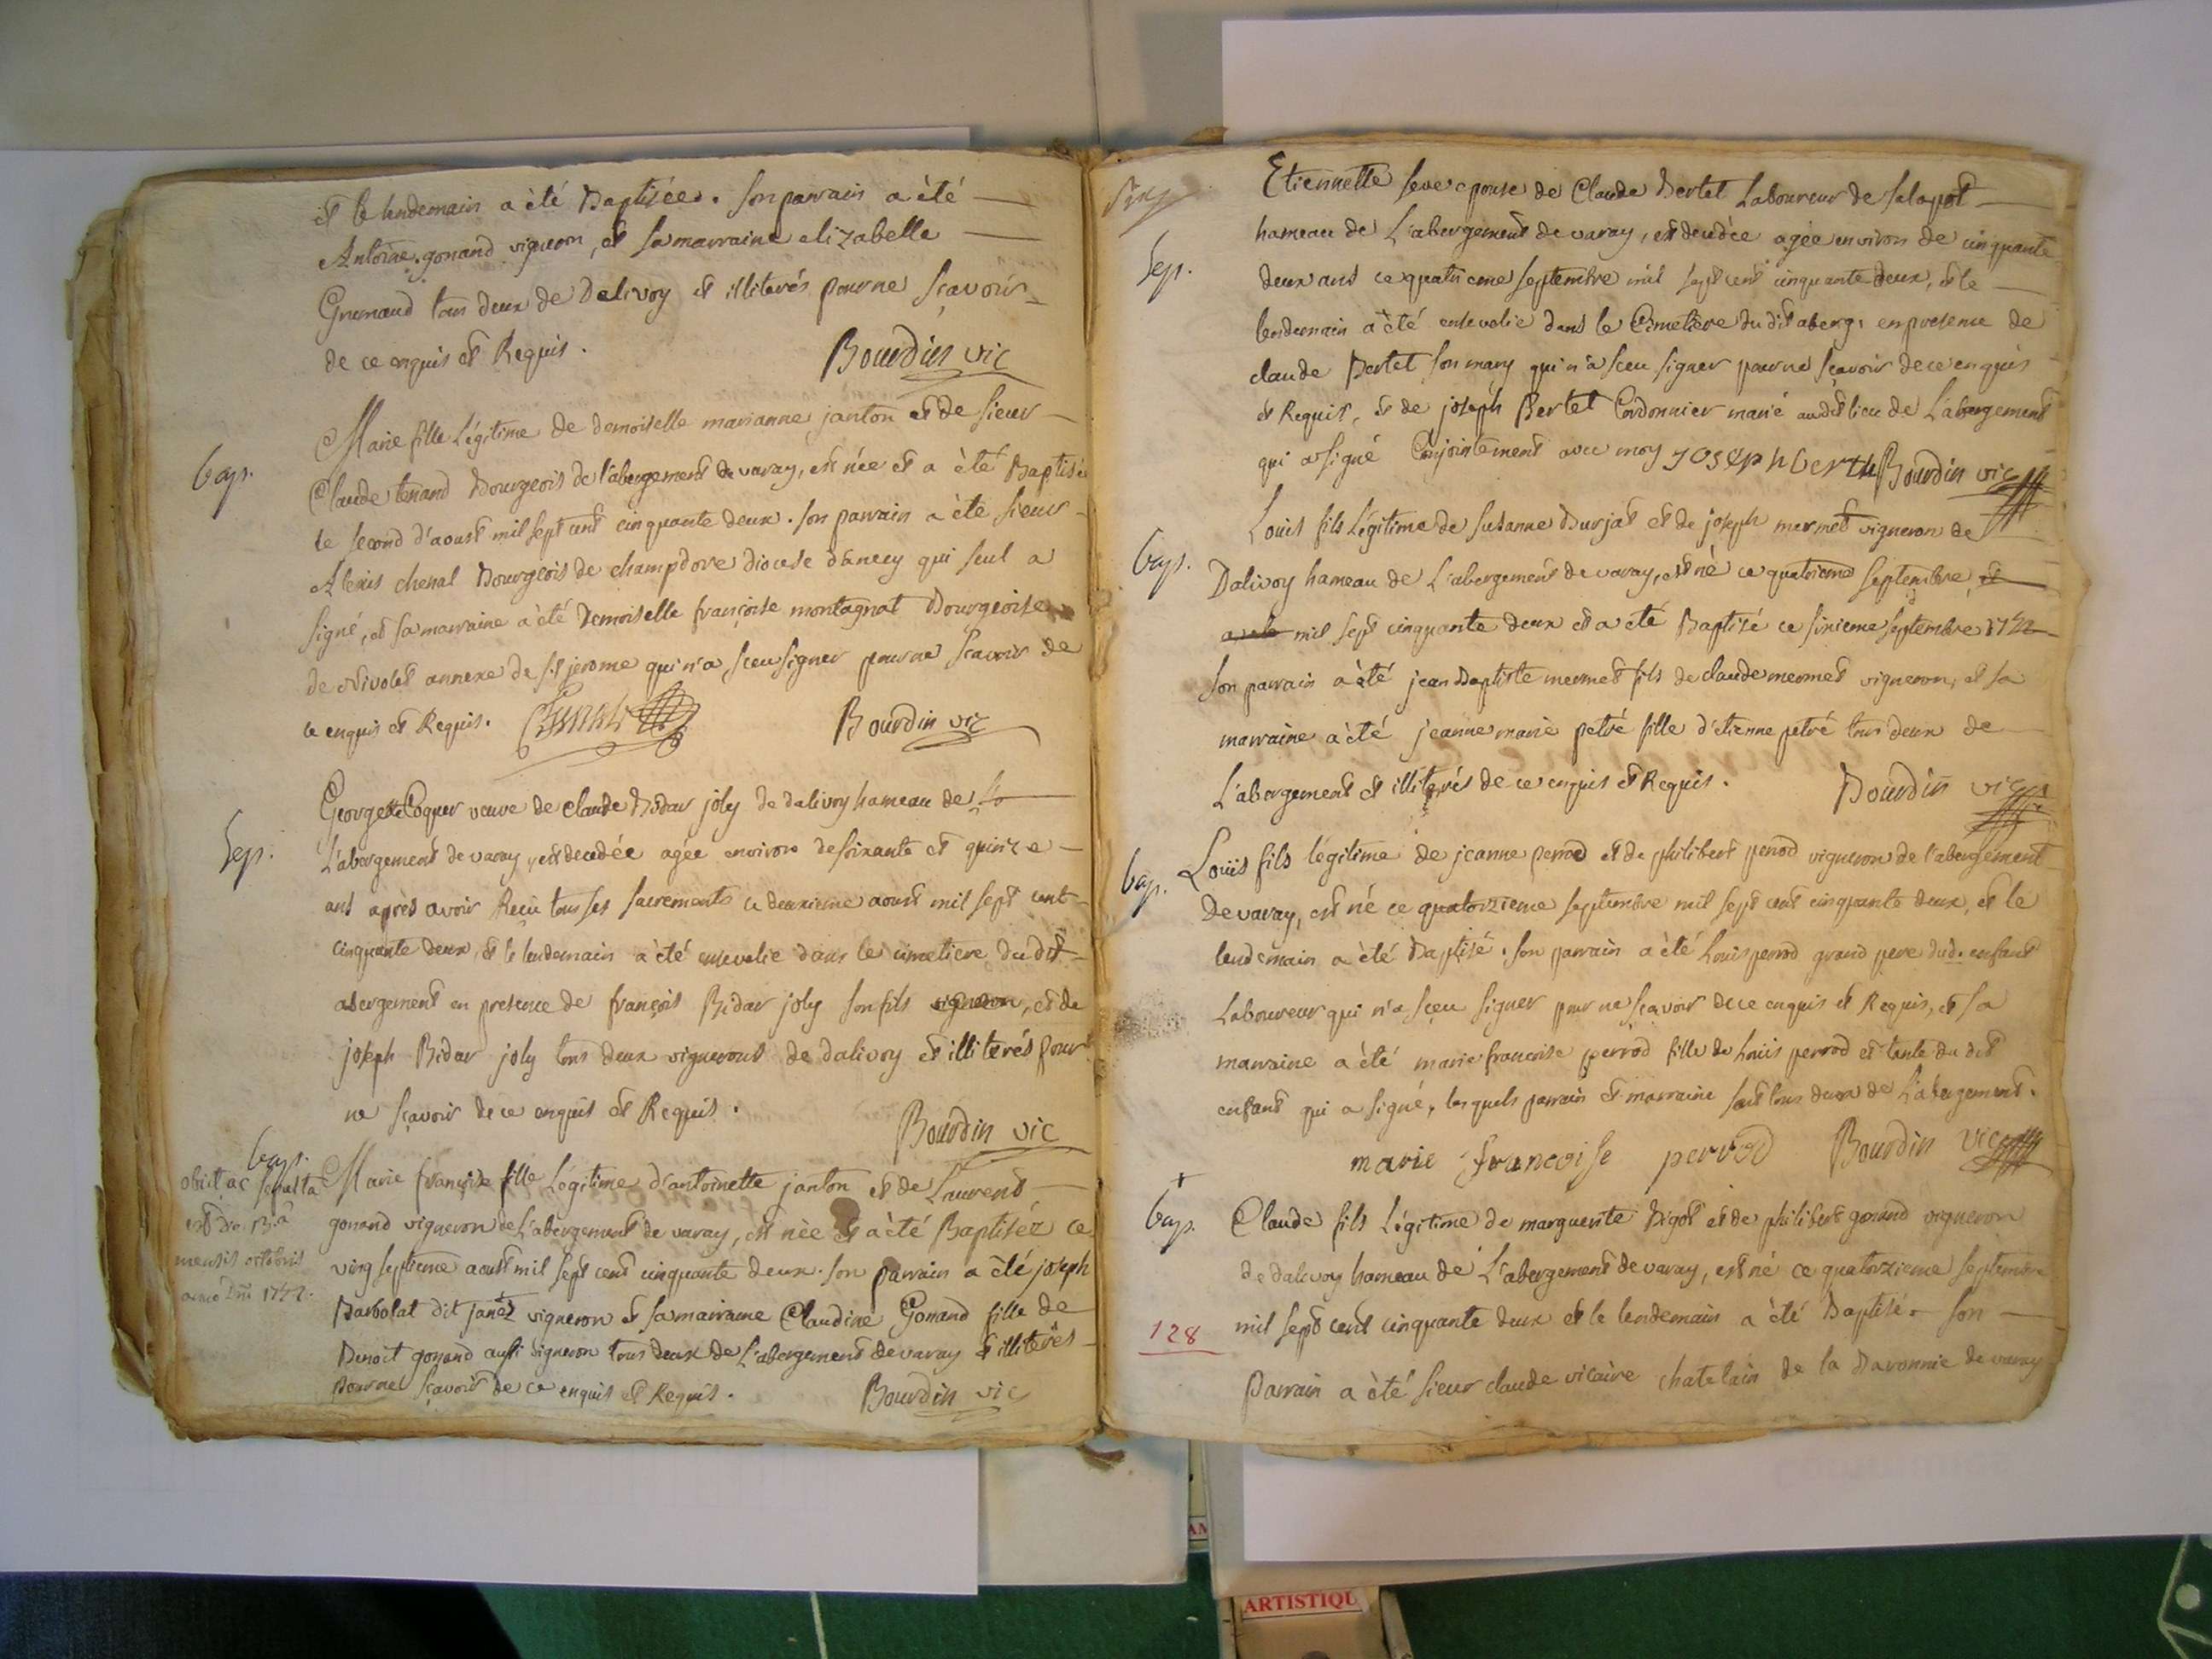 et le lendemain a été Baptisée. son parrain a été
Antoine gonand vigneron, et sa marraine elizabelle
Grumand tous deux de Dalivoy et illiterés pour ne sçavoir
de ce enquis et Requis. Bourdin vic
Bap.
Marie fille Légitime de demoiselle marianne janton et de sieur
Claude tenand Bourgeois de l'abergement de varay, est née et a été Baptisée
le second d'aoust mil sept cent cinquante deux. son parrain a été sieur
Alexis chenal Bourgeois de champdore diocese d'anecy qui seul a
signé, et sa marraine a été Demoiselle françoise montagnat Bourgeoise
de Nivolet annexe de st jerome qui n'a sceu signer pour ne scavoir de
ce enquis et Requis. Bourdin vic
Sep.
Georgette Coquer veuve de claude Bidar joly de dalivoy hameau de
L'abergement de varay, est decedée agée environ de soixante et quinze
ans après avoir Reçu tous ses sacrements ce deuxieme aoust mil sept cent
cinquante deux, et le lendemain a été ensevelie dans le cimetiere du dit
abergement en presence de françois Bidar joly son fils vigneron, et de
joseph Bidar joly tous deux vignerons de dalivoy et illiterés pour
ne sçavoir de ce enquis et Requis.
Bourdin vic
Bap.
obiit ac sepulta
est die 13.a
mensis octobris
anno Dni 1752.
Marie françoise fille Légitime d'antoinette janton et de Laurent
gonand vigneron de L'abergement de varay, est née et a été Baptisée ce
ving septieme aoust mil sept cent cinquante deux. son parrain a été joseph
Barbolat dit janez vigneron et sa marraine Claudine Gonand fille de
Benoit gonand aussi vigneron tous deux de L'abergement de varay et illiterés
pour ne sçavoir de ce enquis et Requis. Bourdin vic
Sep.
Etiennette seve epouse de Claude Bertet Laboureur de salapot
hameau de L'abergement de varay, est decedée agée environ de cinquante
deux ans ce quatrieme septembre mil sept cent cinquante deux, et le
lendemain a été ensevelie dans le Cimetiere du dit aberg. en presence de
claude Bertet son mary qui n'a sceu signer pour ne sçavoir de ce enquis
et Requis, et de joseph Bertet Cordonnier marié au dit lieu de L'abergement
qui a signé Conjointement avec moy Joseph berth Bourdin vic
Bap.
Louis fils Légitime de susanne Burjat et de joseph mermet vigneron de
Dalivoy hameau de L'abergement de varay, est né ce quatrieme septembre, et
a ete mil sept cinquante deux et a été Baptisé ce sixieme septembre 1752
son parrain a été jean Baptiste mermet fils de claude mermet vigneron, et sa
marraine a été jeanne marie petré fille d'etienne petré tous deux de
L'abergement et illiterés de ce enquis et Requis. Bourdin vic
Bap.
Louis fils légitime de jeanne perrod et de philibert perrod vigneron de l'abergement
De varay, est né ce quatorzieme septembre mil sept cent cinquante deux, et le
lendemain a été Baptisé. son parrain a été Louis perrod grand pere dud. enfant
Laboureur qui n'a sçeu signer pour ne sçavoir de ce enquis et Requis, et sa
marraine a été marie francoise perrod fille de Louis perrod et tante du dit
enfant qui a signé, lesquels parrain et marraine sont tous deux de L'abergement.
marie francoise perrod Bourdin vic
+
Bap.
Claude fils Légitime de marguerite Bigot et de philibert gonand vigneron
de dalivoy hameau de L'abergement de varay, est né ce quatorzieme septembre
128
mil sept cent cinquante deux et le lendemain a été Baptisé. son
parrain a été sieur claude vicaire chatelain de la Baronnie de varay
ARTISTIQU